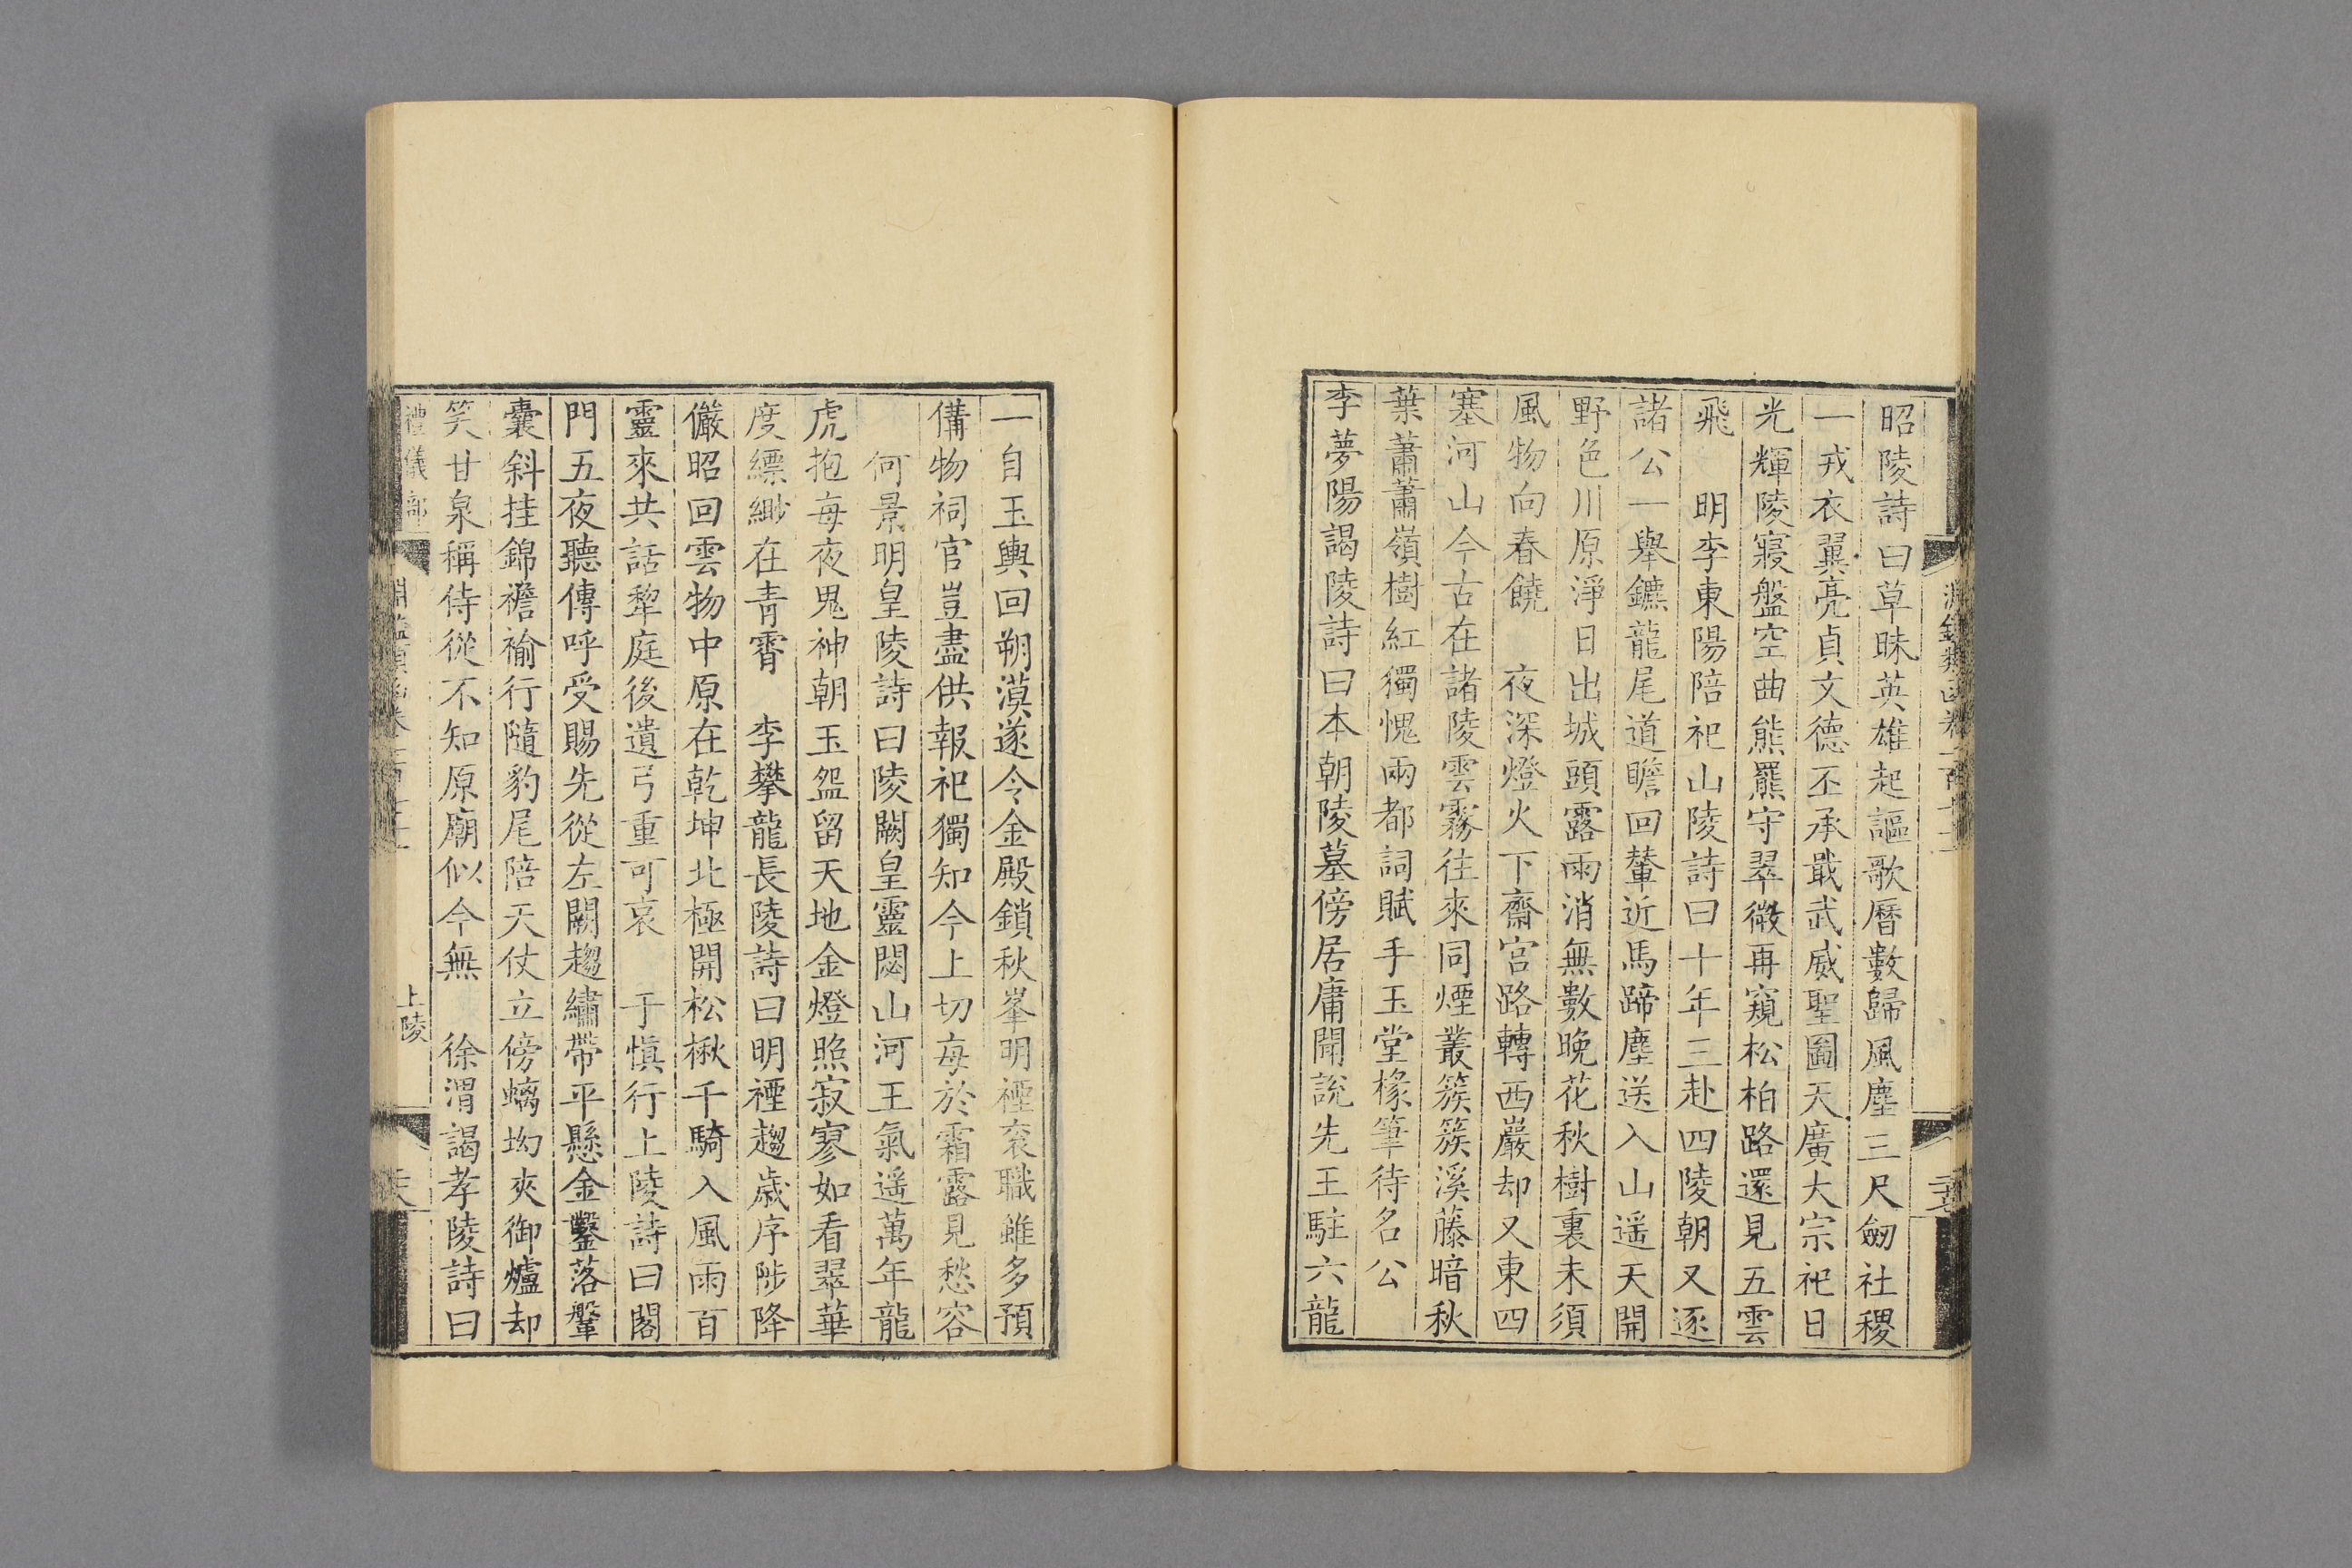 昭陵詩曰草昧英雄起謳歌曆數歸風塵三尺劒社稷
一戎衣翼亮貞文德丕承戢武威聖圖天廣大宗祀日
光輝陵寢盤空曲熊羆守翠微再窺松柏路還見五雲
飛　明李東陽陪祀山陵詩曰十年三赴四陵朝又逐
諸公一舉鑣龍尾道瞻回輦近馬蹄塵送入山遥天開
野色川原淨日出城頭露雨消無數晚花秋樹裏未須
風物向春饒　夜深燈火下齋宮路轉西巖却又東四
塞河山今古在諸陵雲霧往來同煙叢簇簇溪藤暗秋
葉蕭蕭嶺樹紅獨愧兩都詞賦手玉堂椽筆待名公
李夢陽謁陵詩曰本朝陵墓傍居庸聞說先王駐六龍
一自玉輿回朔漠遂令金殿鎖秋峯明禋衮職雖多預
備物祠官豈盡供報祀獨知今上切每於霜露見愁容
何景明皇陵詩曰陵闕皇靈閟山河王氣遥萬年龍
虎抱每夜鬼神朝玉盌留天地金燈照寂寥如看翠華
度縹緲在青霄　李攀龍長陵詩曰明禋趨歲序陟降
儼昭回雲物中原在乾坤北極開松楸千騎入風雨百
靈來共話犂庭後遺弓重可哀　于愼行上陵詩曰閣
門五夜聽傳呼受賜先從左闕趨繡帶平懸金鑿落鞶
囊斜挂錦襜褕行隨豹尾陪天仗立傍螭坳夾御爐却
笑甘泉稱侍從不知原廟似今無　徐渭謁孝陵詩曰
禮儀部
上陵